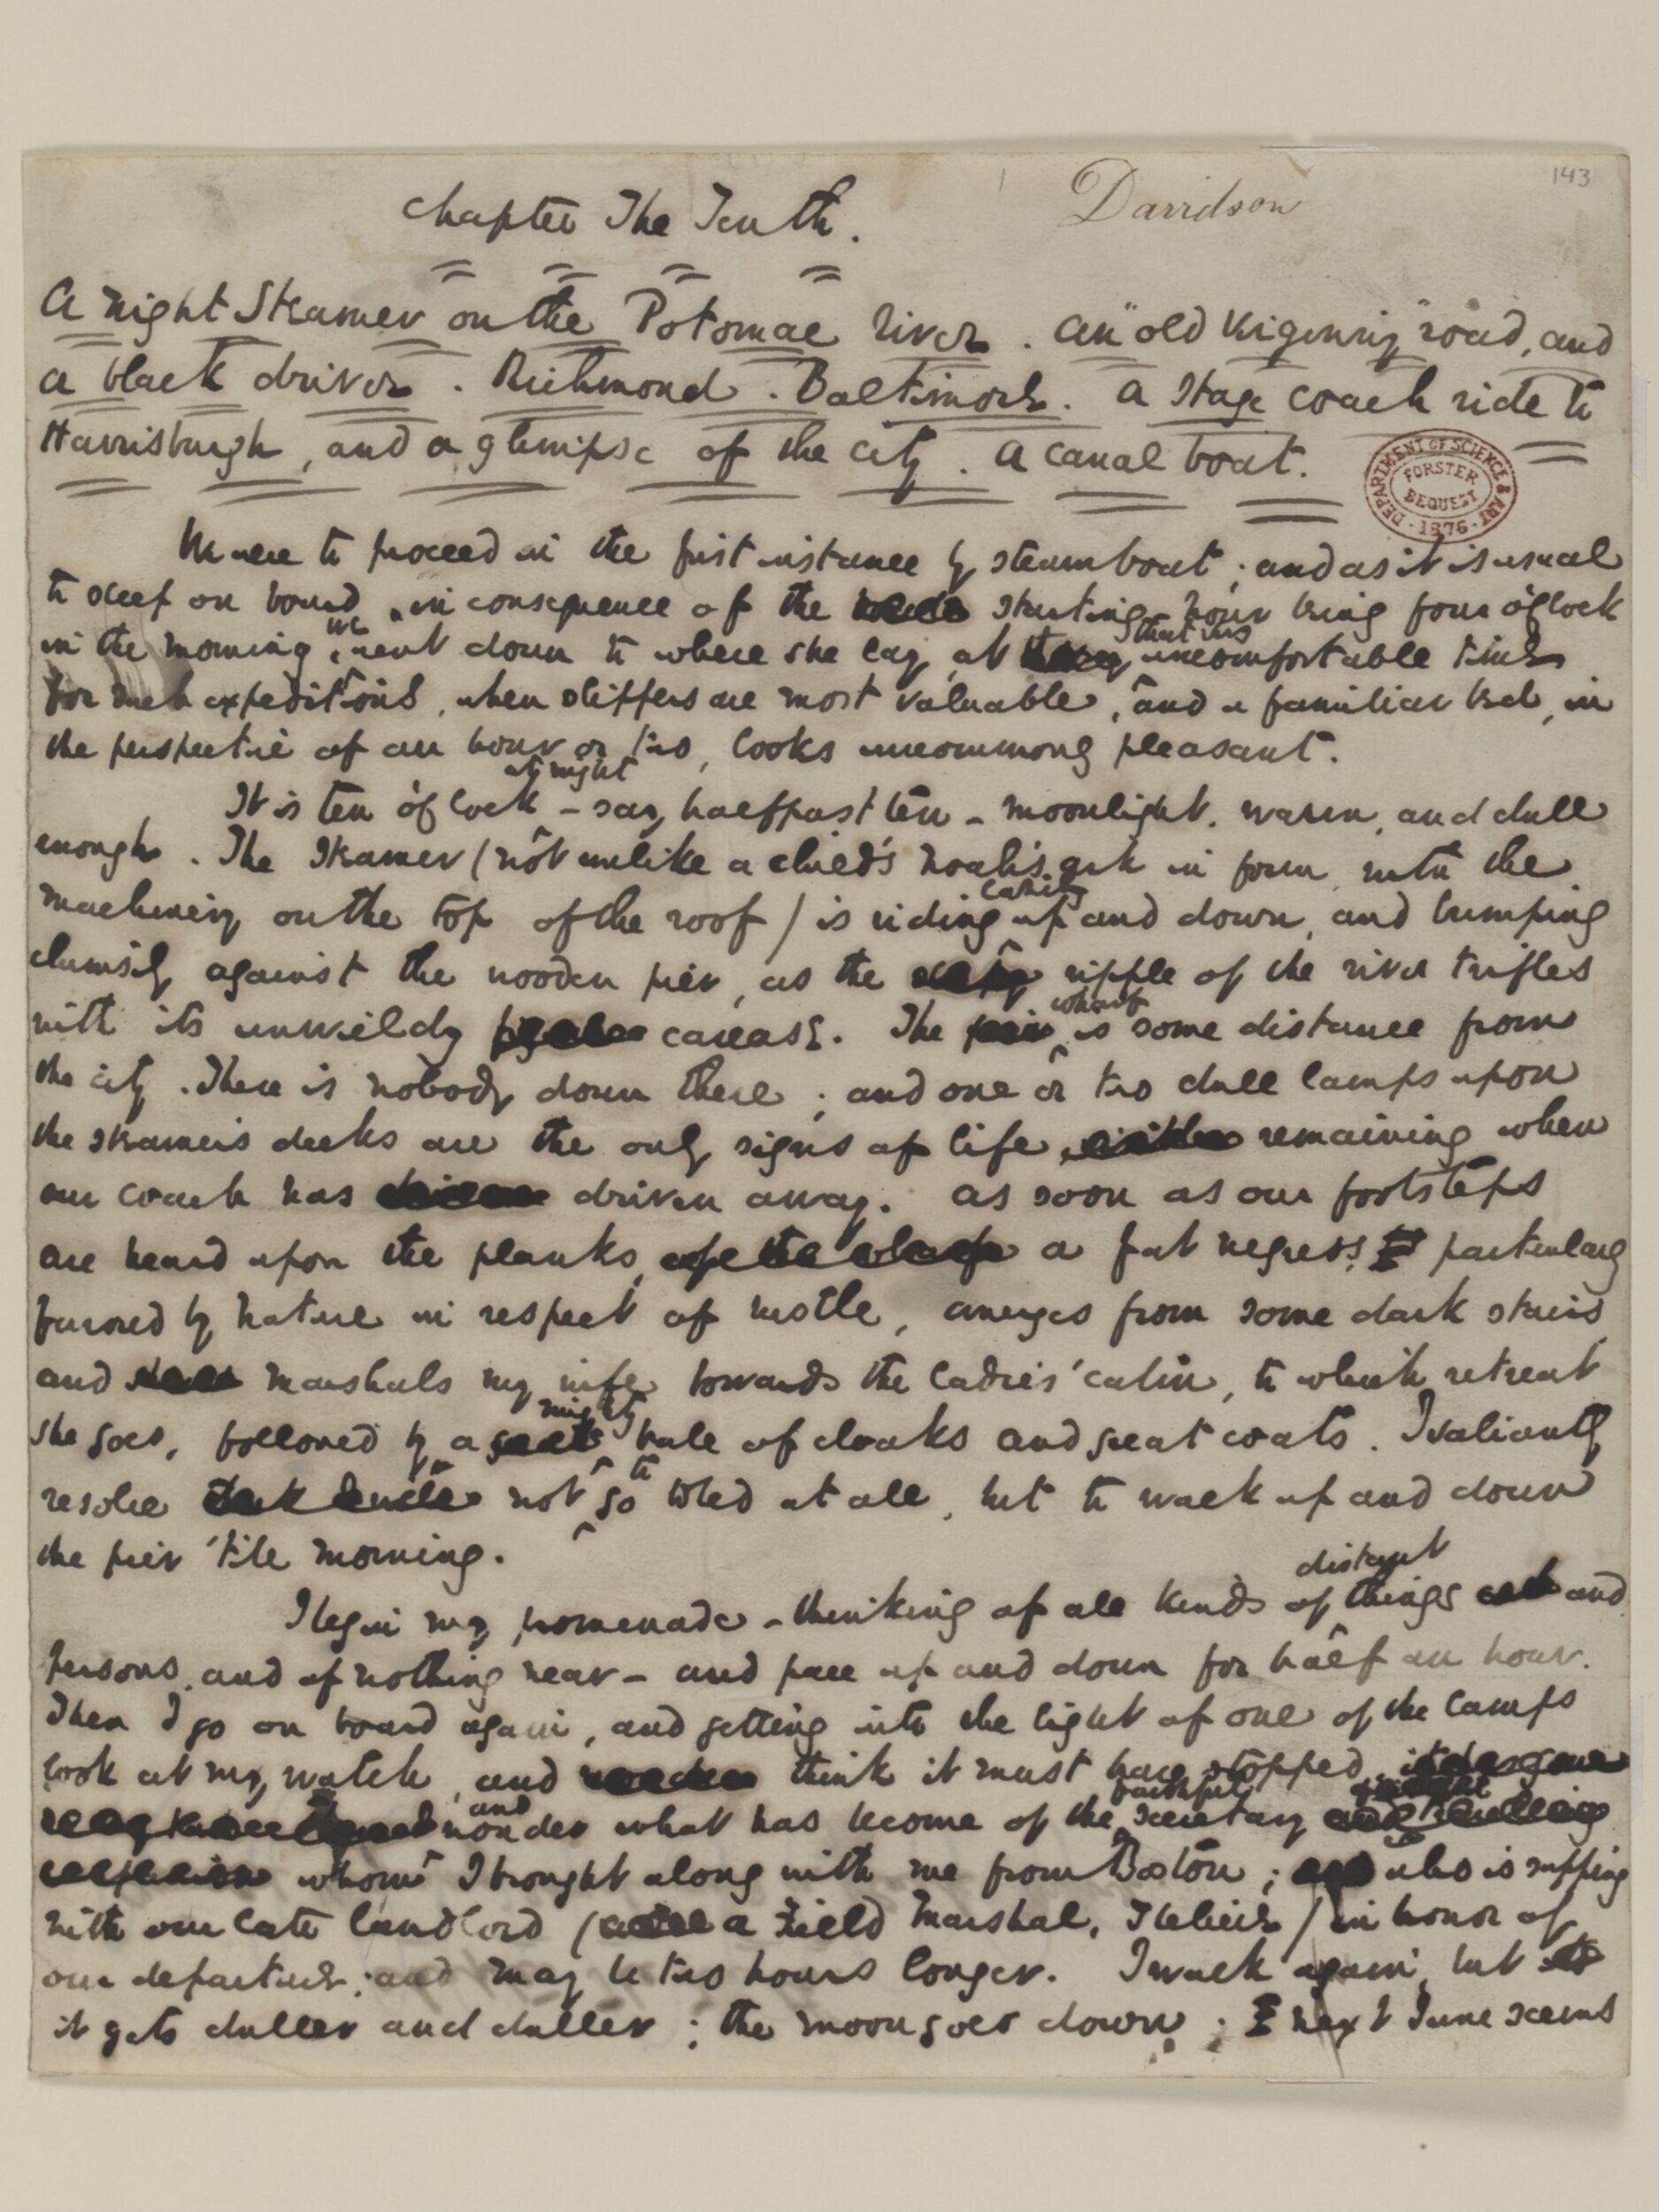 Davidson
143
Chapter The Tenth.
A night Steamer on the Potomac River. An "old Virginny" road, and
a black driver. Richmond. Baltimore. A Stage Coach ride to
Harrisburgh, and a glimpse of the city. A canal boat.
DEPARTMENT OF SCIENCE & ART
FORSTER
BEQUEST
1876
We were to proceed in the first instance by steamboat; and as it is usual
to sleep on board, in consequence of the starting-hour being four o'clock
in the morning, we went down to where she lay, at that very uncomfortable time
for such expeditions, when slippers are most valuable, and a familiar bed, in
the perspective of an hour or two, looks uncommonly pleasant.
It is ten o'clock at night – say, half past ten – moonlight, warm, and dull
enough. The Steamer (not unlike a child's Noah's ark in form, with the
machinery on the top of the roof) is riding lazily up and down, and bumping
clumsily against the wooden pier, as the ripple of the river trifles
with its unwieldy carcase. The wharf is some distance from
the city. There is nobody down there; and one or two dull lamps upon
the steamer's decks are the only signs of life remaining when
our coach has driven away. As soon as our footsteps
are heard upon the planks, a fat negress, particularly
favored by nature in respect of bustle, emerges from some dark stairs,
and marshals my wife towards the ladies' cabin, to which retreat
she goes, followed by a mighty bale of cloaks and great coats. I valiantly
resolve not to go to bed at all, but to walk up and down
the pier 'till morning.
I begin my promenade – thinking of all kinds of distant things and
persons, and of nothing near – and pace up and down for half an hour.
Then I go on board again, and getting into the light of one of the lamps
look at my watch, and think it must have stopped,
and wonder what has become of the faithful secretary
whom I brought along with me from Boston; who is supping
with our late landlord (a Field Marshal, I believe) in honor of
our departure; and may be two hours longer. I walk again, but
it gets duller and duller; the moon goes down; next June seems